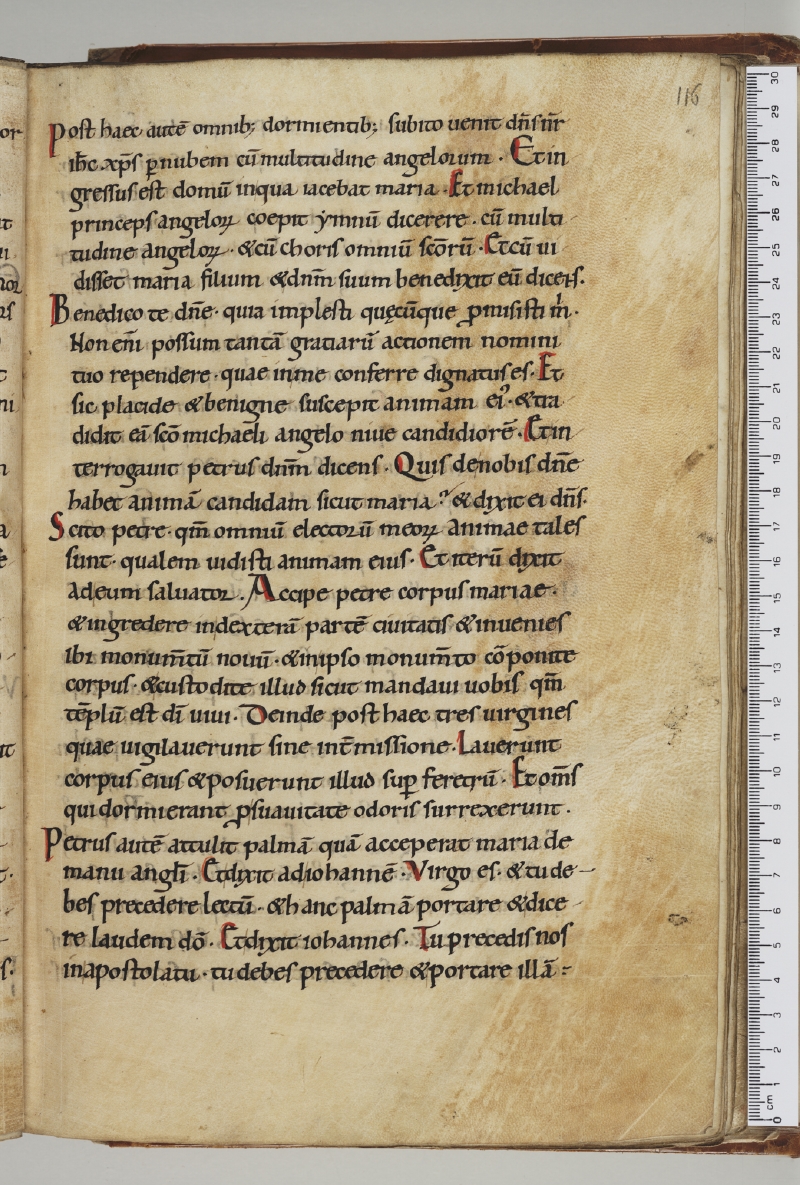 116
Post haec autē omnib; dormientib; subito uenit dn̄s nr̄
ih̄c xp̄s p̱ nubem cū multitudine angelorum · Et in
gressus est domū in qua iacebat maria · Et michael
princeps angeloꝝ coepit ẏmnū dicerere · cū multi
tudine angeloꝝ · & cū choris omniū sc̄orū · Et cū ui
disset maria filium & dn̄m suum benedixit eū dicens.
Benedico te dn̄e · quia implesti quęcūque ꝓmisisti m̄ ·
Non eni̅ possum tantā gratiarū actionem nomini
tuo rependere · quae in me conferre dignatus es · Et
sic placide & benigne suscepit animam ei᾽ · & tra
didit eā sc̄o michaeli angelo niue candidiorē · Et in
terrogauit petrus dn̄m dicens · Quis de nobis dn̄e
habet animā candidam sicut maria ? & dixit ei dn̄s ·
Scito petre · qm̄ omniū electorū meoꝝ animae tales
sunt · qualem uidisti animam eius · Et iterū dixit
ad eum saluator · Accipe petre corpus mariae ·
& ingredere in dexterā partē ciuitatis & inuenies
ibi monum̄tū nouū · & in ipso monum̄to cōponite
corpus · & custodite illud sicut mandaui uobis qm̄
tēplū est dī uiui · Deinde post haec tres uirgines
quae uigilauerunt sine int̄missione · Lauerunt
corpus eius & posuerunt illud suꝑ feretrū · Et om̄s
qui dormierant ꝓ suauitate odoris surrexerunt ·
Petrus autē attulit palmā quā acceperat maria de
manu angl̄i · Et dixit ad iohannē · Virgo es · & tu de
bes precedere lectū · & hanc palmā portare & dice
re laudem dō · Et dixit iohannes · Tu precedis nos
in apostolatu · tu debes precedere & portare illā :
0 cm 1 2 3 4 5 6 7 8 9 10 11 12 13 14 15 16 17 18 19 20 21 22 23 24 25 26 27 28 29 30